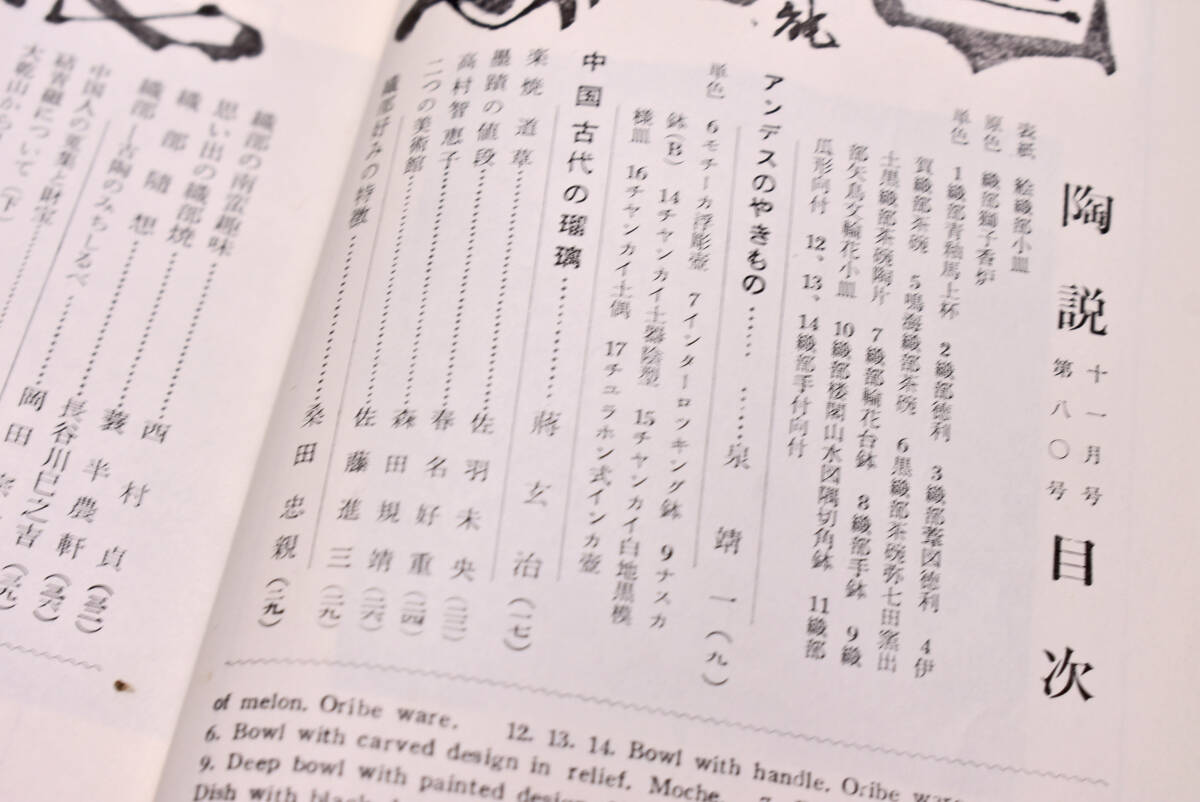 陶説 十一月号 第八〇号 目次
表紙 絵織部小皿
原色 織部獅子香炉
単色 1織部青釉馬上杯 2織部徳利 3織部葦図徳利 4伊
賀織部茶碗 5鳴海織部茶碗 6黒織部茶碗弥七田窯出
土黒織部茶碗陶片 7織部輪花台鉢 8織部手鉢 9織
部矢鳥文輪花小皿 10織部楼閣山水図隅切角鉢 11織部
瓜形向付 12、13、14織部手付向付
アンデスのやきもの…… ……泉靖一(九)
単色 6モチーカ浮彫壺 7インターロッキング鉢 9ナスカ
鉢(B) 14チャンカイ土器陰型 15チャンカイ白地黒模
様皿 16チャンカイ土偶 17チュラホン式インカ壺
中国古代の瑠璃……………蔣玄治(一七)
楽焼道草……………佐羽未央(二三)
墨蹟の値段……………春名好重(二四)
高村智恵子……………森田規靖(二六)
二つの美術館……………佐藤進三(二九)
織部好みの特徴……………桑田忠親(二九)
織部の南蛮趣味……………西村貞(三二)
思い出の織部焼……………蓑半農軒(三六)
織部随想……………長谷川巳之吉(三九)
織部―古陶のみちしるべ……………岡田宗
中国人の蒐集と財宝
結青磁について(下)
大乾山から
of melon. Oribe ware. 12. 13. 14. Bowl with handle. Oribe ware.
6. Bowl with carved design in relief. Moche. 7.
9. Deep bowl with painted design
Dish with black